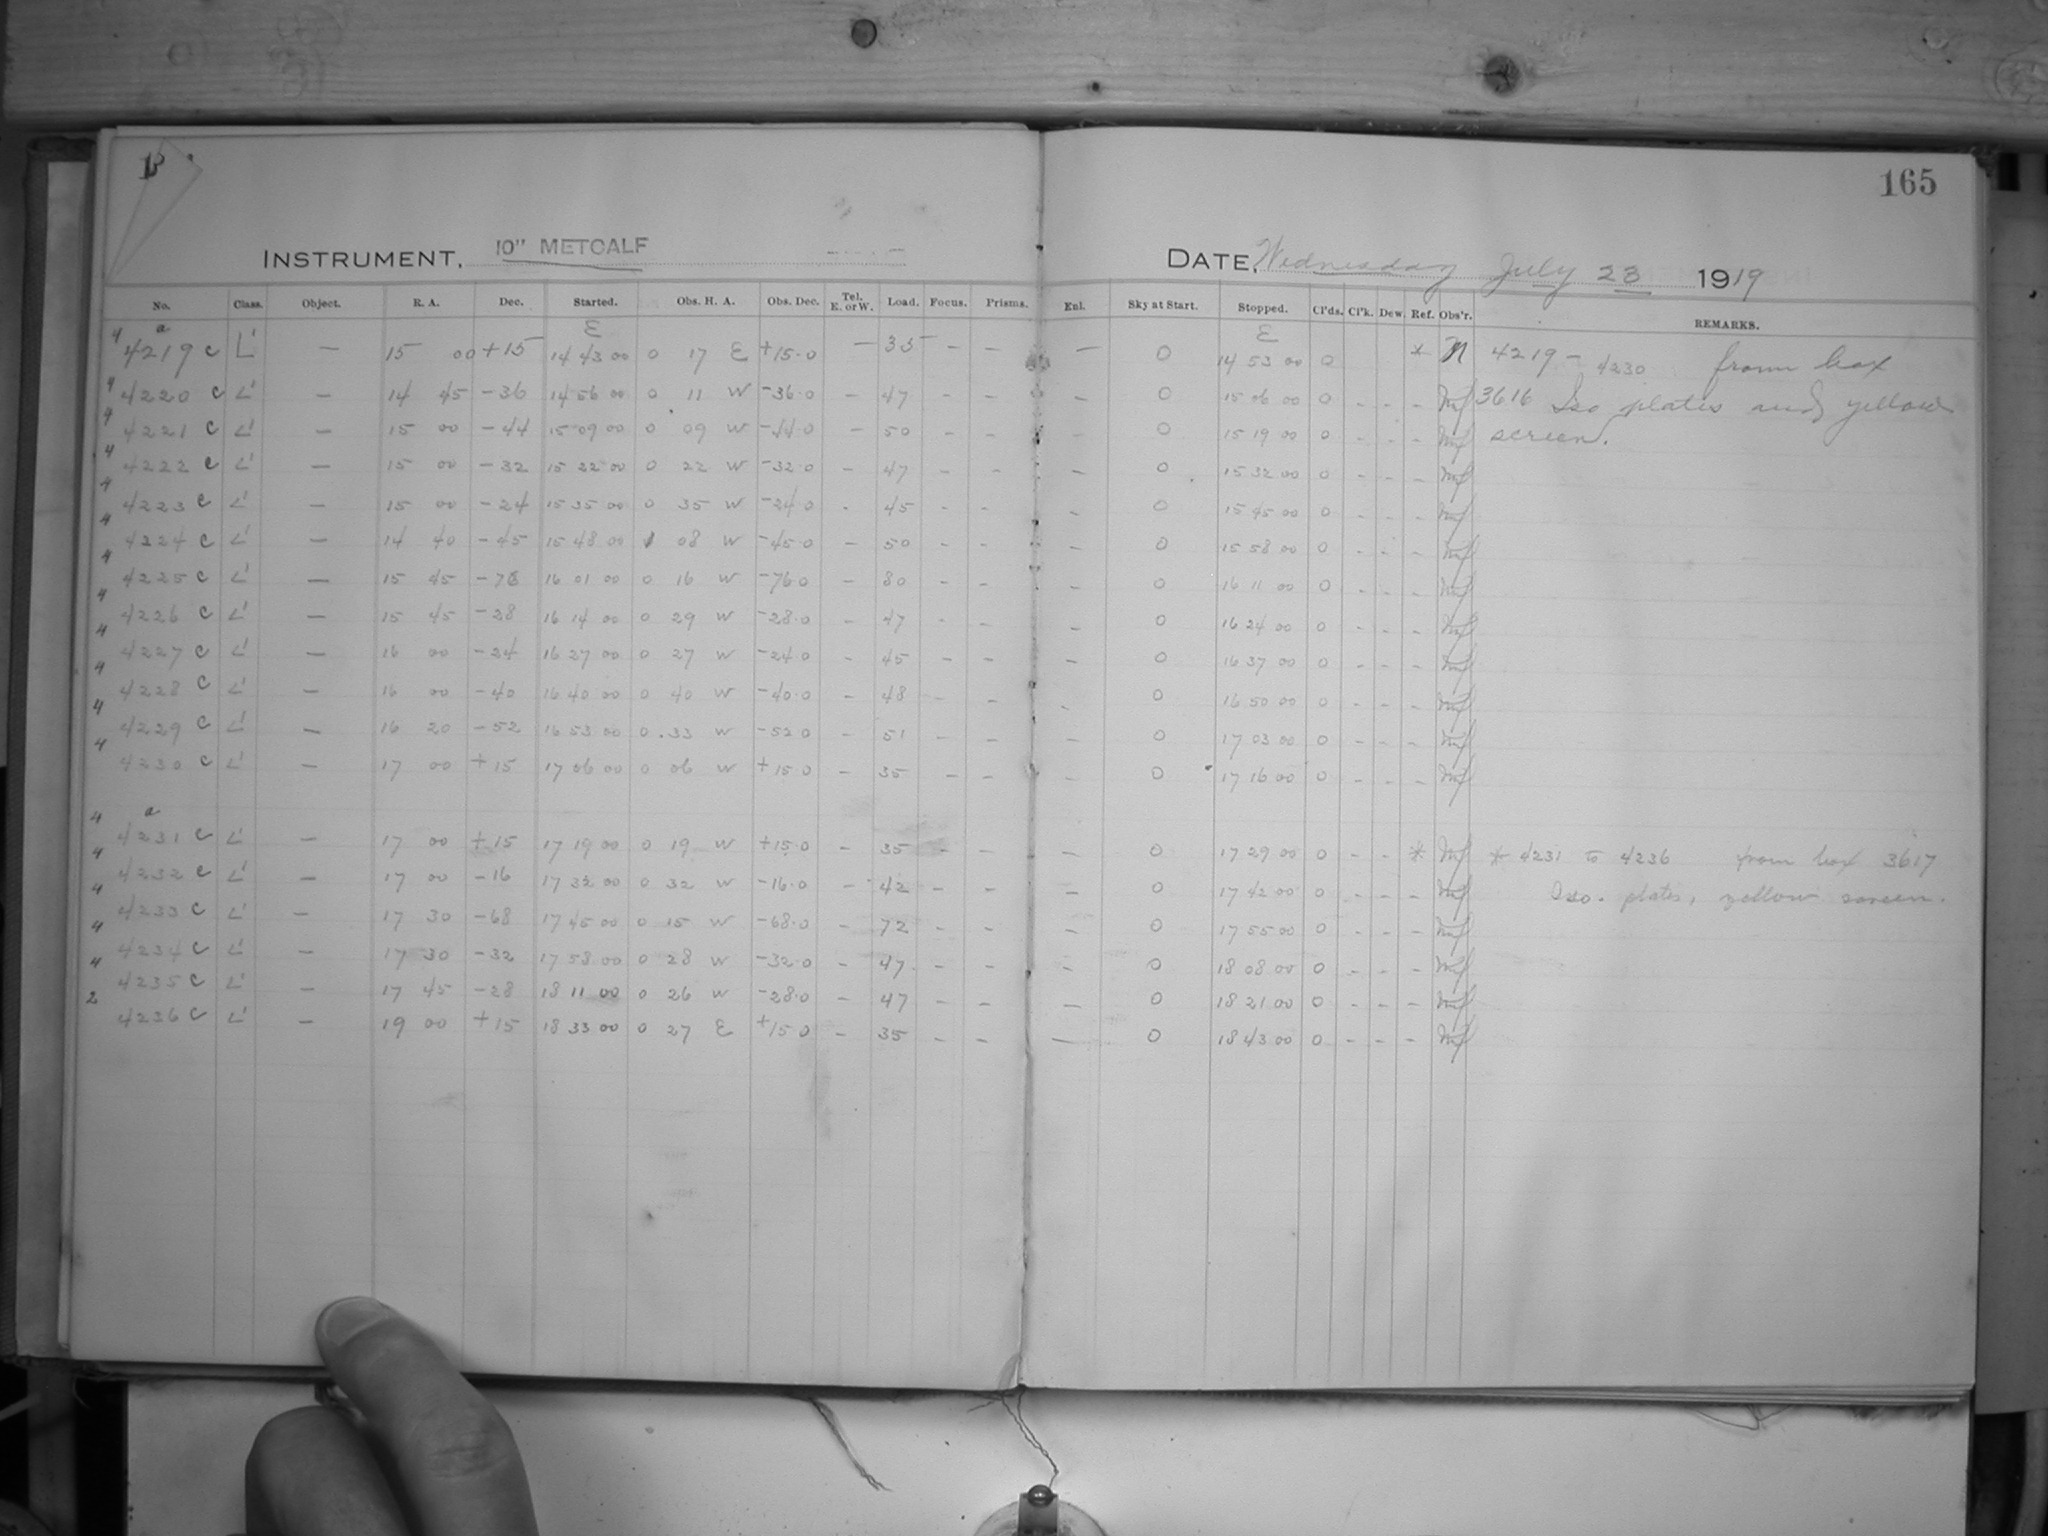 165
INSTRUMENT, 10" METCALF DATE, Wednesday July 23 1919
No. Class. Object. R. A. Dec. Started. Obs. H. A. Obs. Dec. Tel. E. or W. Load. Focus. Prisms. Enl. Sky at Start. Stopped. Cl'ds. Cl'k. Dew. Ref. Obs'r. REMARKS.
a E E
4 4219 c L' — 15 00 +15 14 43 00 0 17 E +15.0 — 35 — — — 0 14 53 00 0 * 4219 - 4230 from box
4 4220 c L' — 14 45 -36 14 56 00 0 11 W -36.0 - 47 - - - 0 15 06 00 0 - - - 3616 Iso plates and yellow
4 4221 c L' — 15 00 -44 15 09 00 0 09 W -44.0 - 50 - - - 0 15 19 00 0 - - - screen.
4 4222 c L' — 15 00 -32 15 22 00 0 22 W -32.0 - 47 - - - 0 15 32 00 0 - - -
4 4223 c L' — 15 00 -24 15 35 00 0 35 W -24.0 - 45 - - - 0 15 45 00 0 - - -
4 4224 c L' — 14 40 -45 15 48 00 1 08 W -45.0 - 50 - - - 0 15 58 00 0 - - -
4 4225 c L' — 15 45 -76 16 01 00 0 16 W -76.0 - 80 - - - 0 16 11 00 0 - - -
4 4226 c L' — 15 45 -28 16 14 00 0 29 W -28.0 - 47 - - - 0 16 24 00 0 - - -
4 4227 c L' — 16 00 -24 16 27 00 0 27 W -24.0 - 45 - - - 0 16 37 00 0 - - -
4 4228 c L' — 16 00 -40 16 40 00 0 40 W -40.0 - 48 - - - 0 16 50 00 0 - - -
4 4229 c L' — 16 20 -52 16 53 00 0 33 W -52.0 - 51 - - - 0 17 03 00 0 - - -
4 4230 c L' — 17 00 +15 17 06 00 0 06 W +15.0 - 35 - - - 0 17 16 00 0 - - -
a
4 4231 c L' — 17 00 +15 17 19 00 0 19 W +15.0 - 35 - - - 0 17 29 00 0 - - * * 4231 to 4236 from box 3617
4 4232 c L' — 17 00 -16 17 32 00 0 32 W -16.0 - 42 - - - 0 17 42 00 0 - - - Iso. plates, yellow screen.
4 4233 c L' — 17 30 -68 17 45 00 0 15 W -68.0 - 72 - - - 0 17 55 00 0 - - -
4 4234 c L' — 17 30 -32 17 58 00 0 28 W -32.0 - 47 - - - 0 18 08 00 0 - - -
4 4235 c L' — 17 45 -28 18 11 00 0 26 W -28.0 - 47 - - - 0 18 21 00 0 - - -
2 4236 c L' — 19 00 +15 18 33 00 0 27 E +15.0 - 35 - - - 0 18 43 00 0 - - -